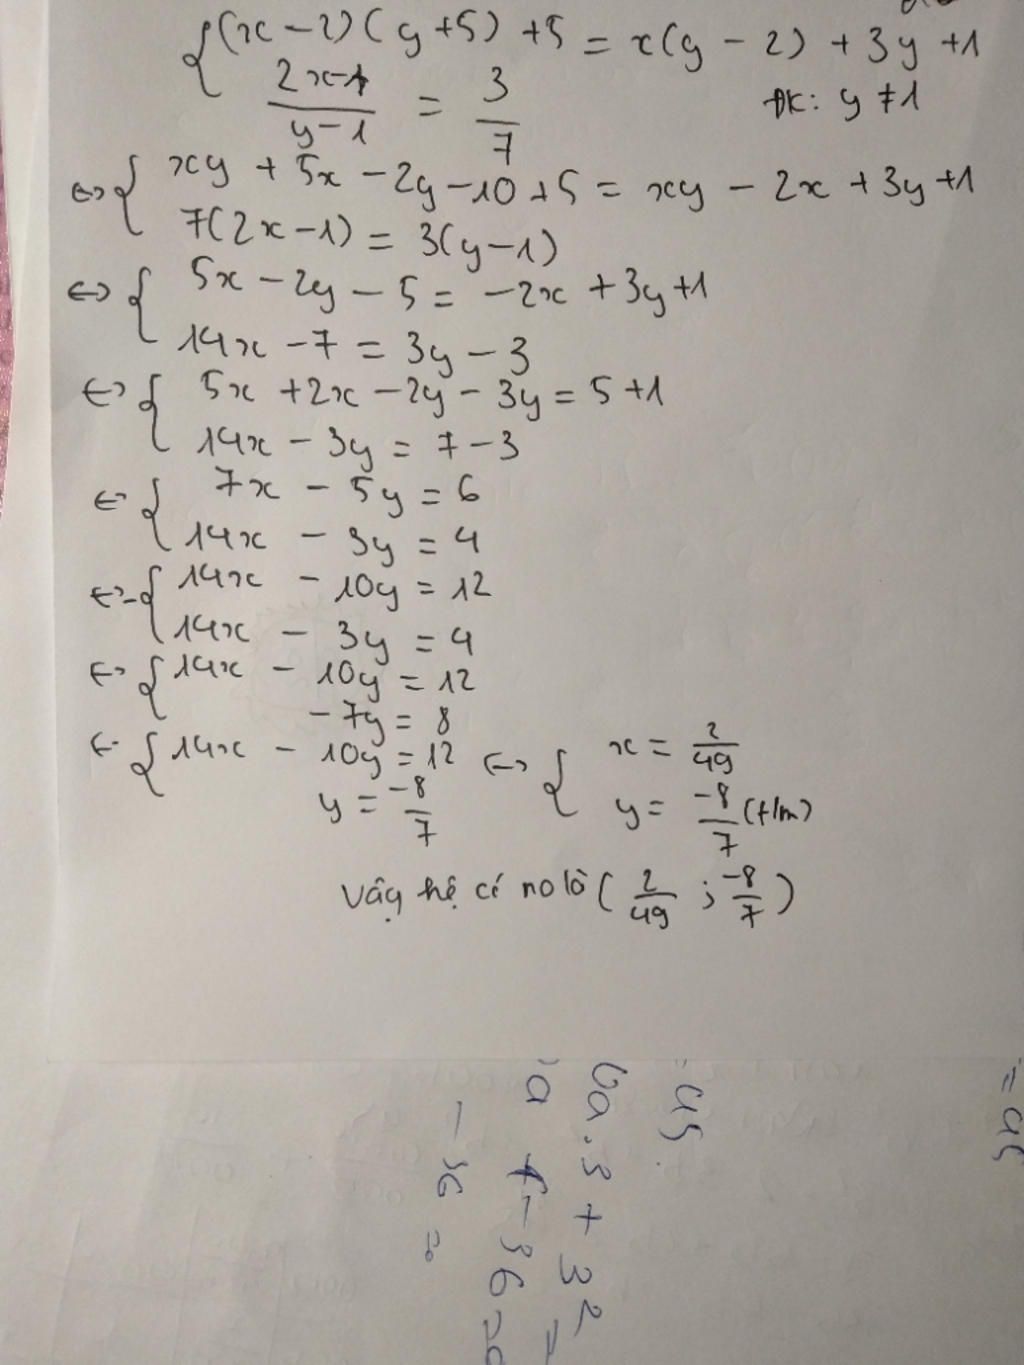 {(x-2)(y+5)+5 = x(y-2)+3y+1
2x-1/y-1 = 3/7 ĐK: y≠1
⇔{xy+5x-2y-10+5 = xy-2x+3y+1
7(2x-1) = 3(y-1)
⇔{5x-2y-5 = -2x+3y+1
14x-7 = 3y-3
⇔{5x+2x-2y-3y = 5+1
14x-3y = 7-3
⇔{7x-5y = 6
14x-3y = 4
⇔{14x-10y = 12
14x-3y = 4
⇔{14x-10y = 12
-7y = 8
⇔{14x-10y = 12 ⇔{x = 2/49
y = -8/7 y = -8/7 (t/m)
Vậy hệ có no là (2/49 ; -8/7)